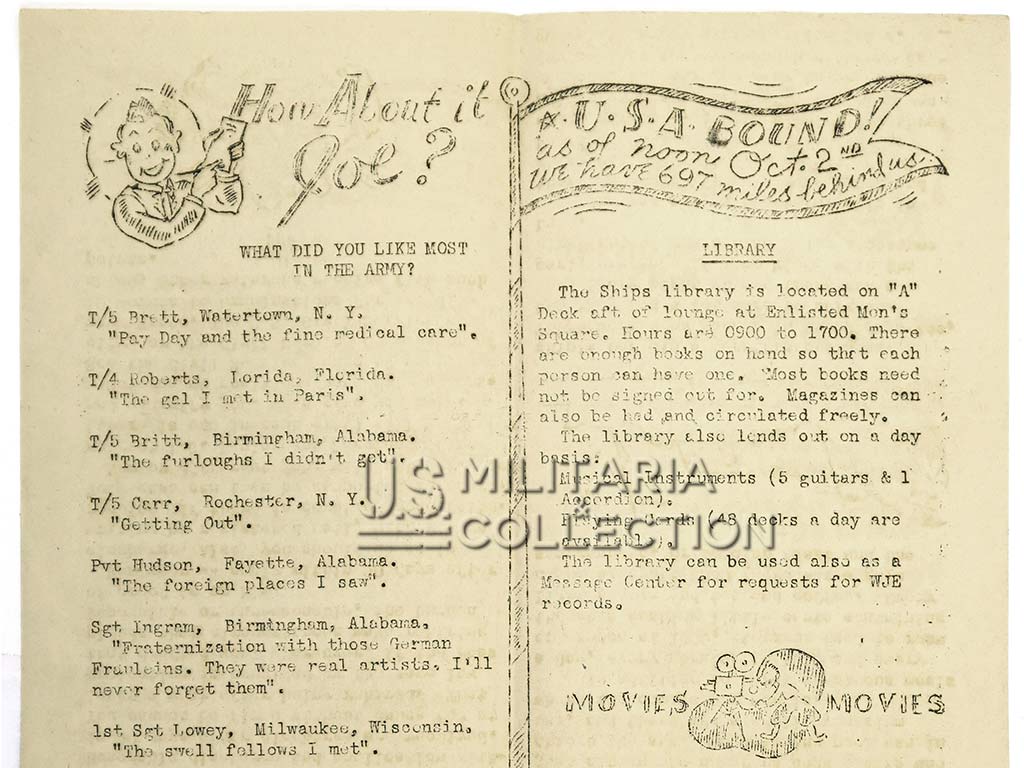 How About it
Joe?
WHAT DID YOU LIKE MOST
IN THE ARMY?
T/5 Brett, Watertown, N. Y.
"Pay Day and the fine medical care".
T/4 Roberts, Lorida, Florida.
"The gal I met in Paris".
T/5 Britt, Birmingham, Alabama.
"The furloughs I didn't get".
T/5 Carr, Rochester, N. Y.
"Getting Out".
Pvt Hudson, Fayette, Alabama.
"The foreign places I saw".
Sgt Ingram, Birmingham, Alabama.
"Fraternization with those German
Frauleins. They were real artists. I'll
never forget them".
1st Sgt Lowey, Milwaukee, Wisconsin.
"The swell fellows I met".
U.S.A. BOUND!
as of noon Oct. 2ND
we have 697 miles behind us.
LIBRARY
The Ships library is located on "A"
Deck aft of lounge at Enlisted Men's
Square. Hours are 0900 to 1700. There
are enough books on hand so that each
person can have one. Most books need
not be signed out for. Magazines can
also be had and circulated freely.
The library also lends out on a day
basis:
Musical Instruments (5 guitars & 1
Accordion).
Playing Cards (48 decks a day are
available).
The library can be used also as a
Message Center for requests for WJE
records.
MOVIES MOVIES
US MILITARIA
COLLECTION